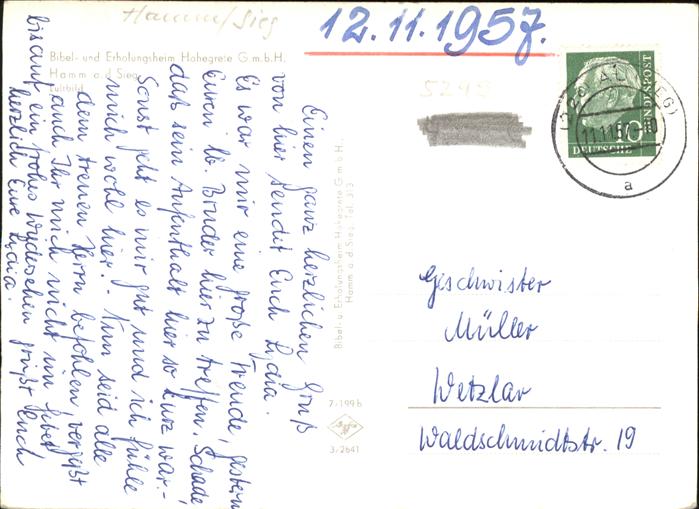 Hamm/Sieg
12.11.1957.
Bibel- und Erholungsheim Hohegrete G.m.b.H.
Hamm a. d. Sieg
Luftbild
5248
Einen ganz herzlichen Gruß
von hier sendet Euch Lydia.
Es war mir eine große Freude, gestern
Euren lb. Bruder hier zu treffen. Schade
daß sein Aufenthalt hier so kurz war.-
Sonst geht es mir gut und ich fühle
mich wohl hier.- Nun seid alle
dem treuen Herrn befohlen, vergeßt
auch Ihr mich nicht im Gebet
bis auf ein frohes Wiedersehen grüßt Euch
herzlich Eure Lydia.
Bibel- u. Erholungsheim Hohegrete G.m.b.H.
Hamm a. d. Sieg, Tel. 313
7/199 b
3/2641
10
DEUTSCHE
BUNDESPOST
11.11.57
a
Geschwister
Müller
Wetzlar
Waldschmidtstr. 19